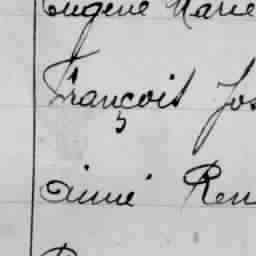 Eugène Marie
François Jos
Aimé Ren